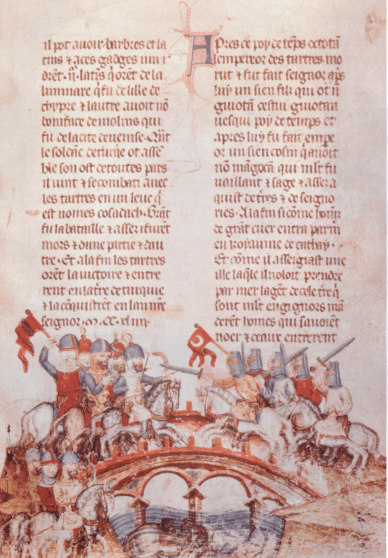 il pot auoir barbres et la
tins & a ces gadges
latis q̃ oret de la
q̃ fu de lisle de
chypre & lautre auoit nõ
boniface de molins qui
fu de la cite de uenise. Qñt
le soldãc de turqie ot asse
ble son ost de toutes pars
il uint & se combati auec
les tartres en un leue q̃
est nomes cosadach. Grãt
fu la bataille & assez i furet
mors & dune partie & dau
tre. Et a la fin les tartres
oret la uictoire & entre
rent en la tre de turquie
& la cõquistrent en lan nre
seignor .m. cc. xl iiii.
Apres ce poy de teps octota
emperor des tartres mo
rut & fut fait seignor aps
luy un sien fili qui ot nõ
guiota cestui guiotan
uesqui poy de temps et
apres luy fu fait empe
or un sien cosin q̃ auoit
nõ mãgocã qui mlt fu
uaillant & sage & assez a
quist de tres & de seigno
ries. A la fin si come home
de grãt cuer entra par m
eu royaume de cathay.
Et cõme il assegiast une
ille laq̃le il uoloit prendre
par mer laget de cele tre q̃
sont mlt engigniors mã
derẽt homes qui sauoiẽt
noer & ceaux entrerent